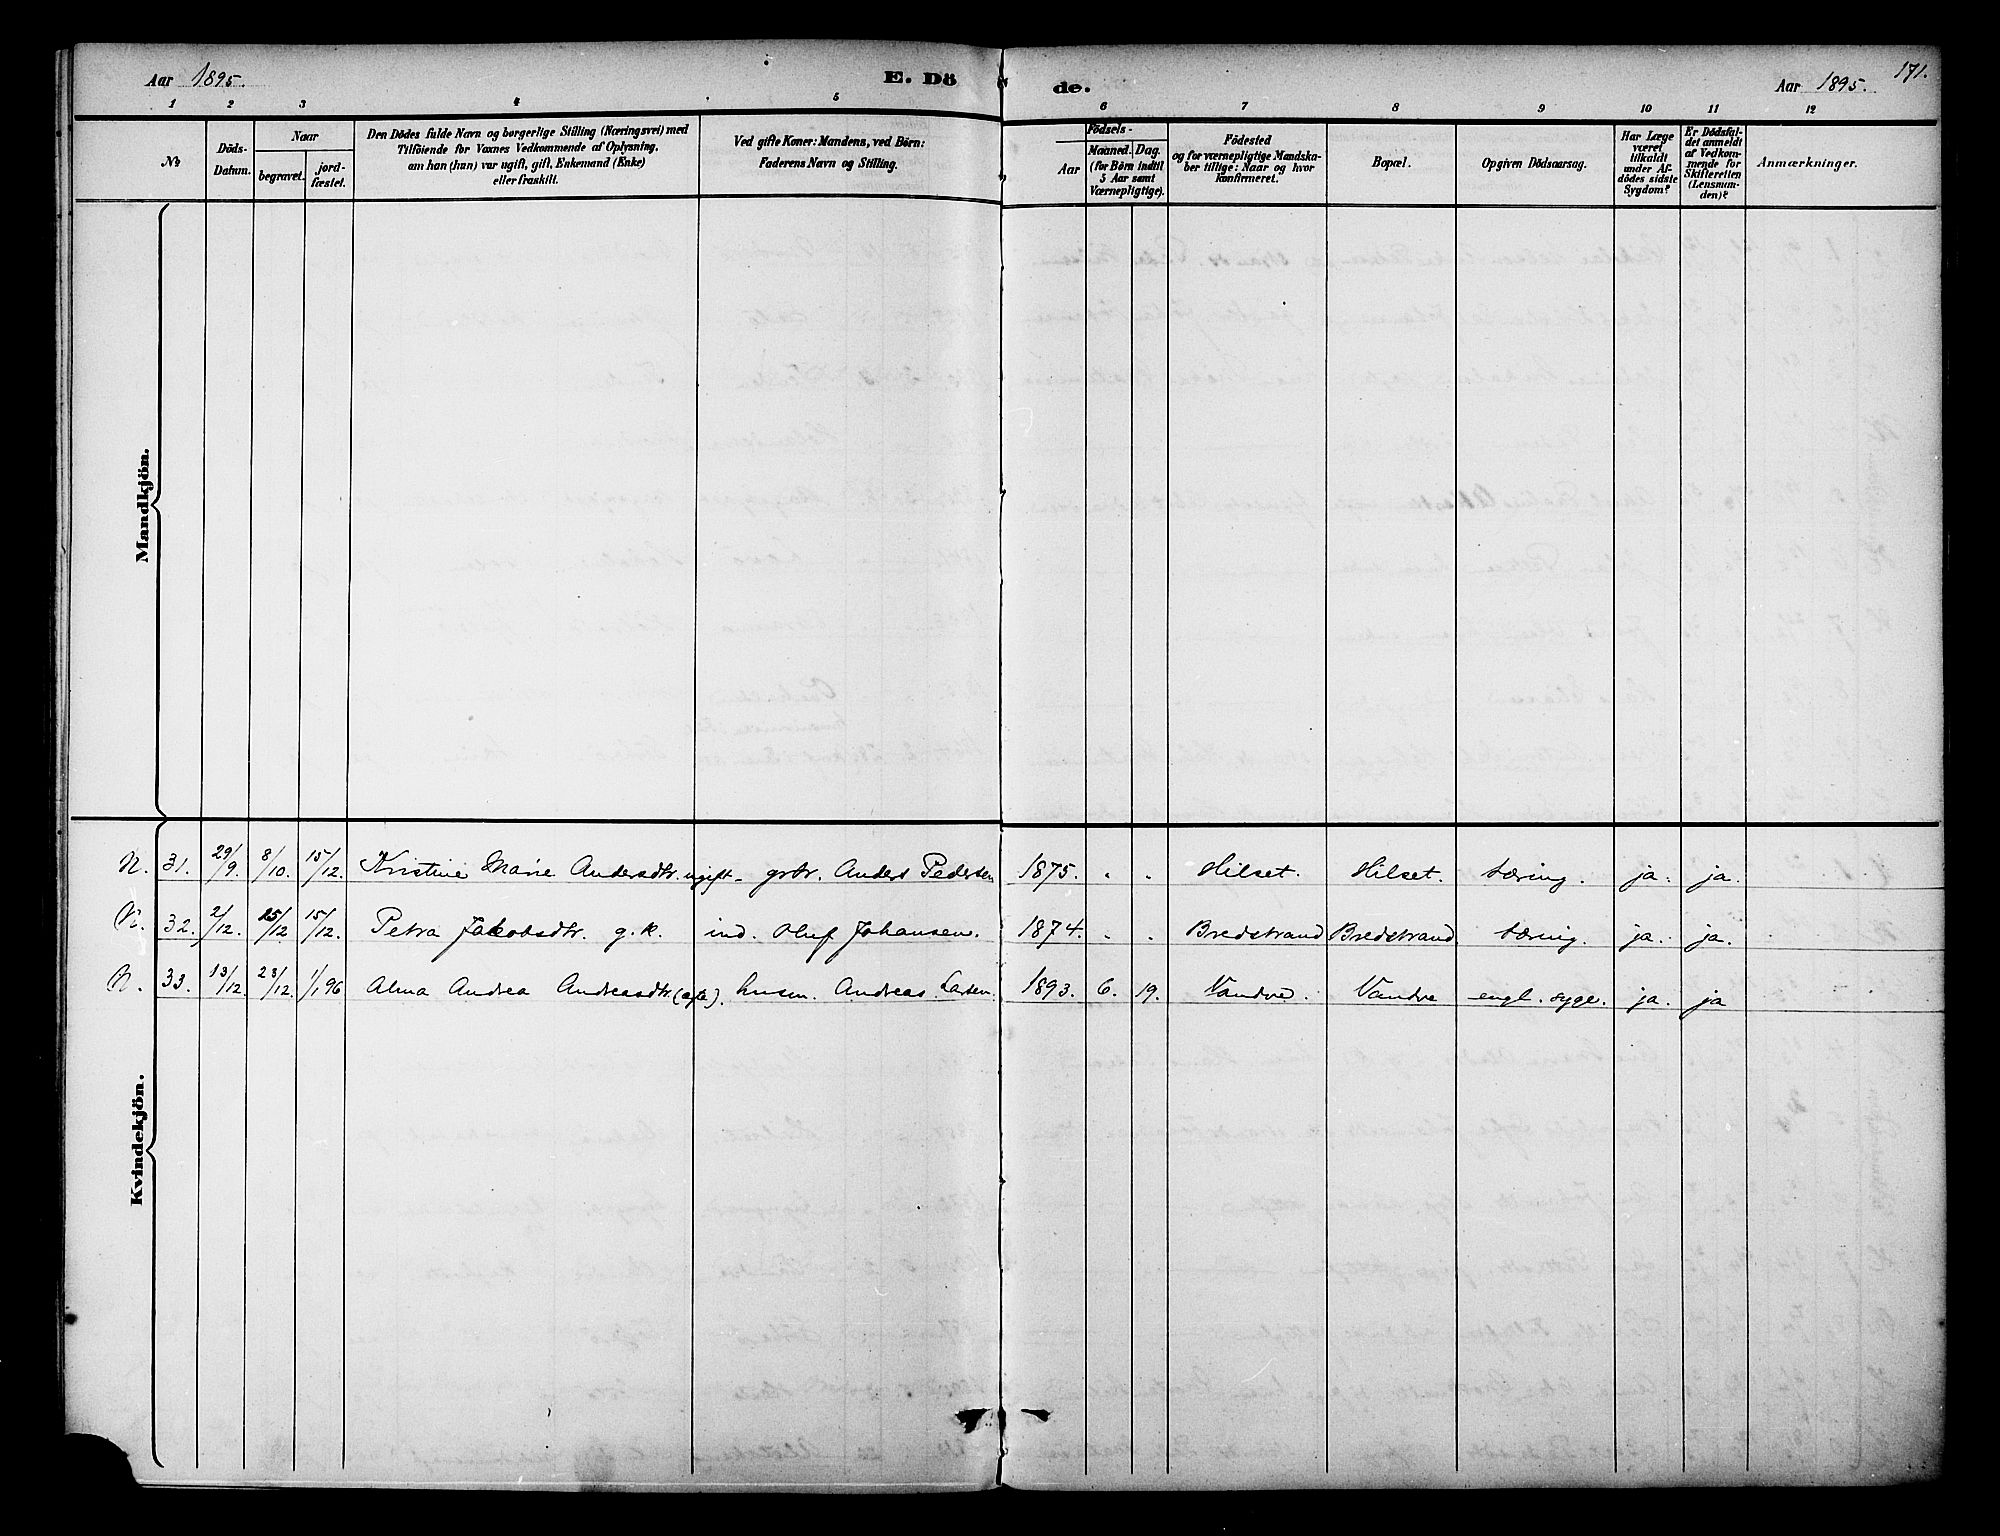 Aar 1895. E. Dö de. Aar 1895. 171.
1 2 3 4 5 6 7 8 9 10 11 12
No
Döds-
Datum.
Naar
begravet.
jord-
fæstet.
Den Dödes fulde Navn og borgerlige Stilling (Næringsvei) med
Tilföiende for Voxnes Vedkommende af Oplysning,
om han (hun) var ugift, gift, Enkemand (Enke)
eller fraskilt.
Ved gifte Koner: Mandens, ved Börn:
Faderens Navn og Stilling.
Födsels-
Aar
Maaned. Dag.
(for Börn indtil
5 Aar samt
Værnepligtige).
Födested
og for værnepligtige Mandska-
ber tillige: Naar og hvor
konfirmeret.
Bopæl.
Opgiven Dödsaarsag.
Har Læge
været
tilkaldt
under Af-
dödes sidste
Sygdom?
Er Dödsfal-
det anmeldt
af Vedkom-
mende for
Skifteretten
(Lensman-
den)?
Anmærkninger.
Mandkjön.
N. 31. 29/9. 8/10. 15/12. Kristine Marie Andersdtr. ugift - grbr. Anders Pedersen 1875. " " Hilset. Hilset. tæring. ja. ja.
N. 32. 2/12. 15/12 15/12. Petra Jakobsdtr. g.k. ind. Oluf Johansen. 1874. " " Bredstrand Bredstrand. tæring. ja. ja.
N. 33. 13/12. 23/12. 1/1 96 Alma Andrea Andreasdtr. (ægte). husm. Andreas Larsen. 1893. 6. 19. Vandve. Vandve engl. syge. ja. ja
Kvindekjön.